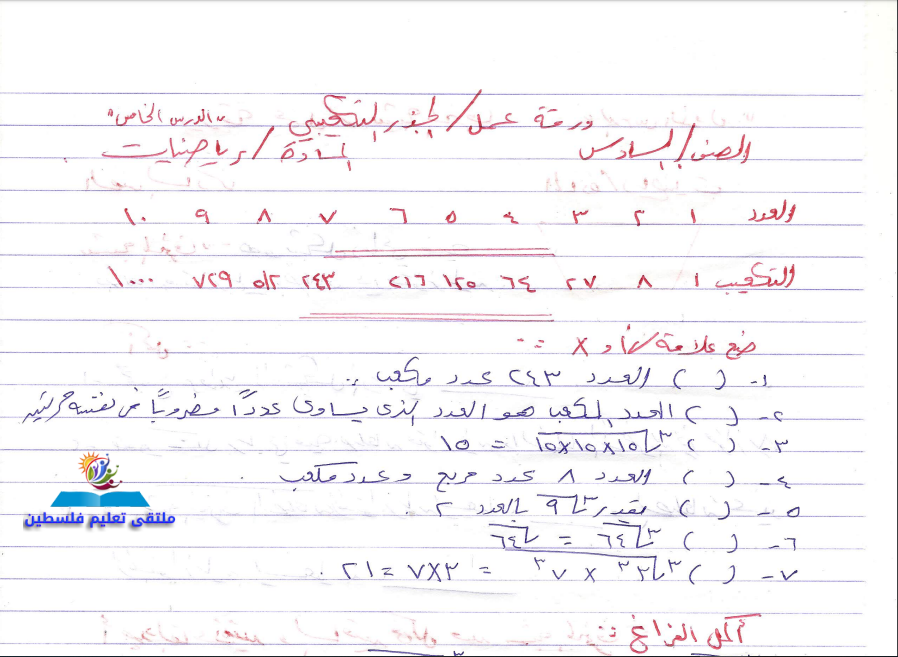 ورقة عمل / الجذر التكعيبي "الدرس الخامس"
الصف / السادس المادة / رياضيات
العدد ١ ٢ ٣ ٤ ٥ ٦ ٧ ٨ ٩ ١٠
التكعيب ١ ٨ ٢٧ ٦٤ ١٢٥ ٢١٦ ٢٤٣ ٥١٢ ٧٢٩ ١٠٠٠
ضع علامة √ أو X :-
١- ( ) العدد ٢٤٣ عدد مكعب .
٢- ( ) العدد المكعب هو العدد الذي يساوي عدداً مضروباً في نفسه مرتين
٣- ( ) ∛١٥×١٥×١٥ = ١٥
٤- ( ) العدد ٨ عدد مربع وعدد مكعب .
٥- ( ) يقدر ∛٩ بالعدد ٢ .
٦- ( ) ∛٦٤ = √٦٤
٧- ( ) ∛٣٣ × ٧٣ = ٣×٧ = ٢١ .
أكمل الفراغ :
ملتقى تعليم فلسطين